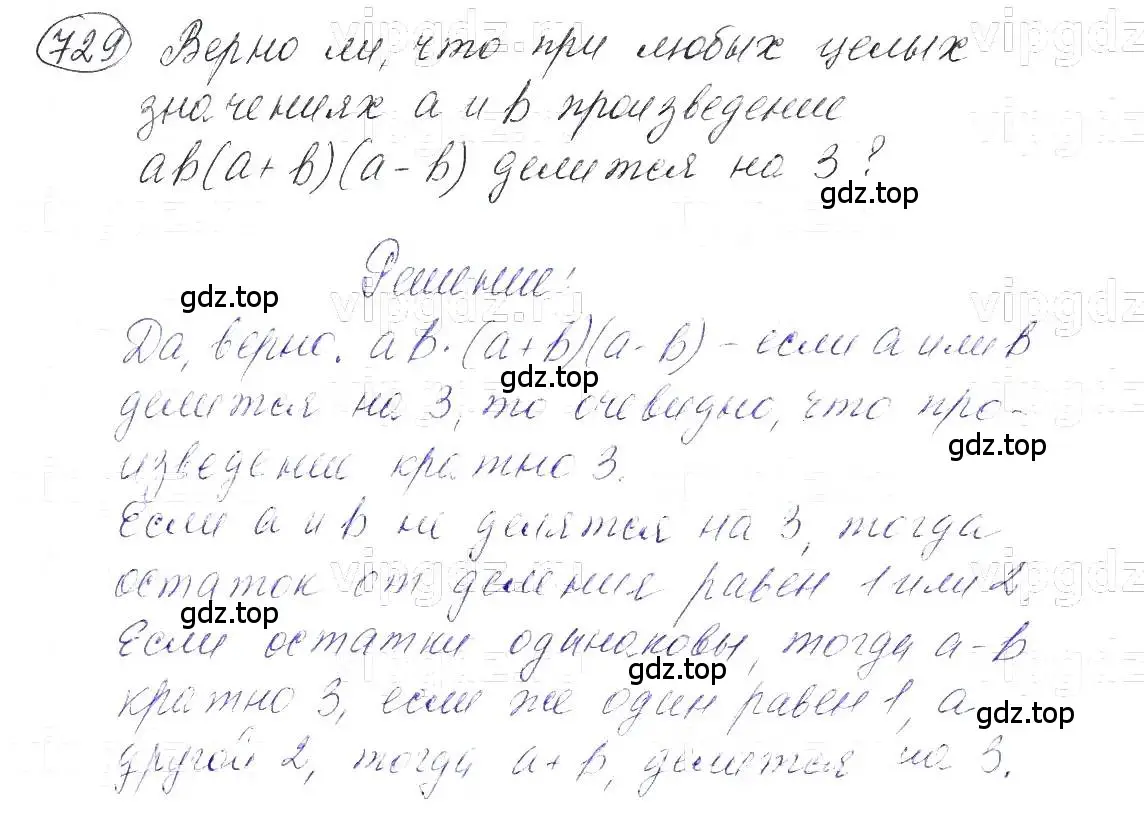 729 Верно ли, что при любых целых
значениях a и b произведение
ab(a+b)(a-b) делится на 3?
gdz.top
Решение:
gdz.top
vipgdz.ru
vipgdz
Да, верно. ab·(a+b)(a-b) - если a или b
gdz.top
делится на 3, то очевидно, что про-
gdz.top
изведение кратно 3.
Если a и b не делятся на 3, тогда
остаток от деления равен 1 или 2.
gdz.top
Если остатки одинаковы, тогда a-b
gdz.top
кратно 3, если же один равен 1, а
gdz.top
другой 2, тогда a+b, делится на 3.